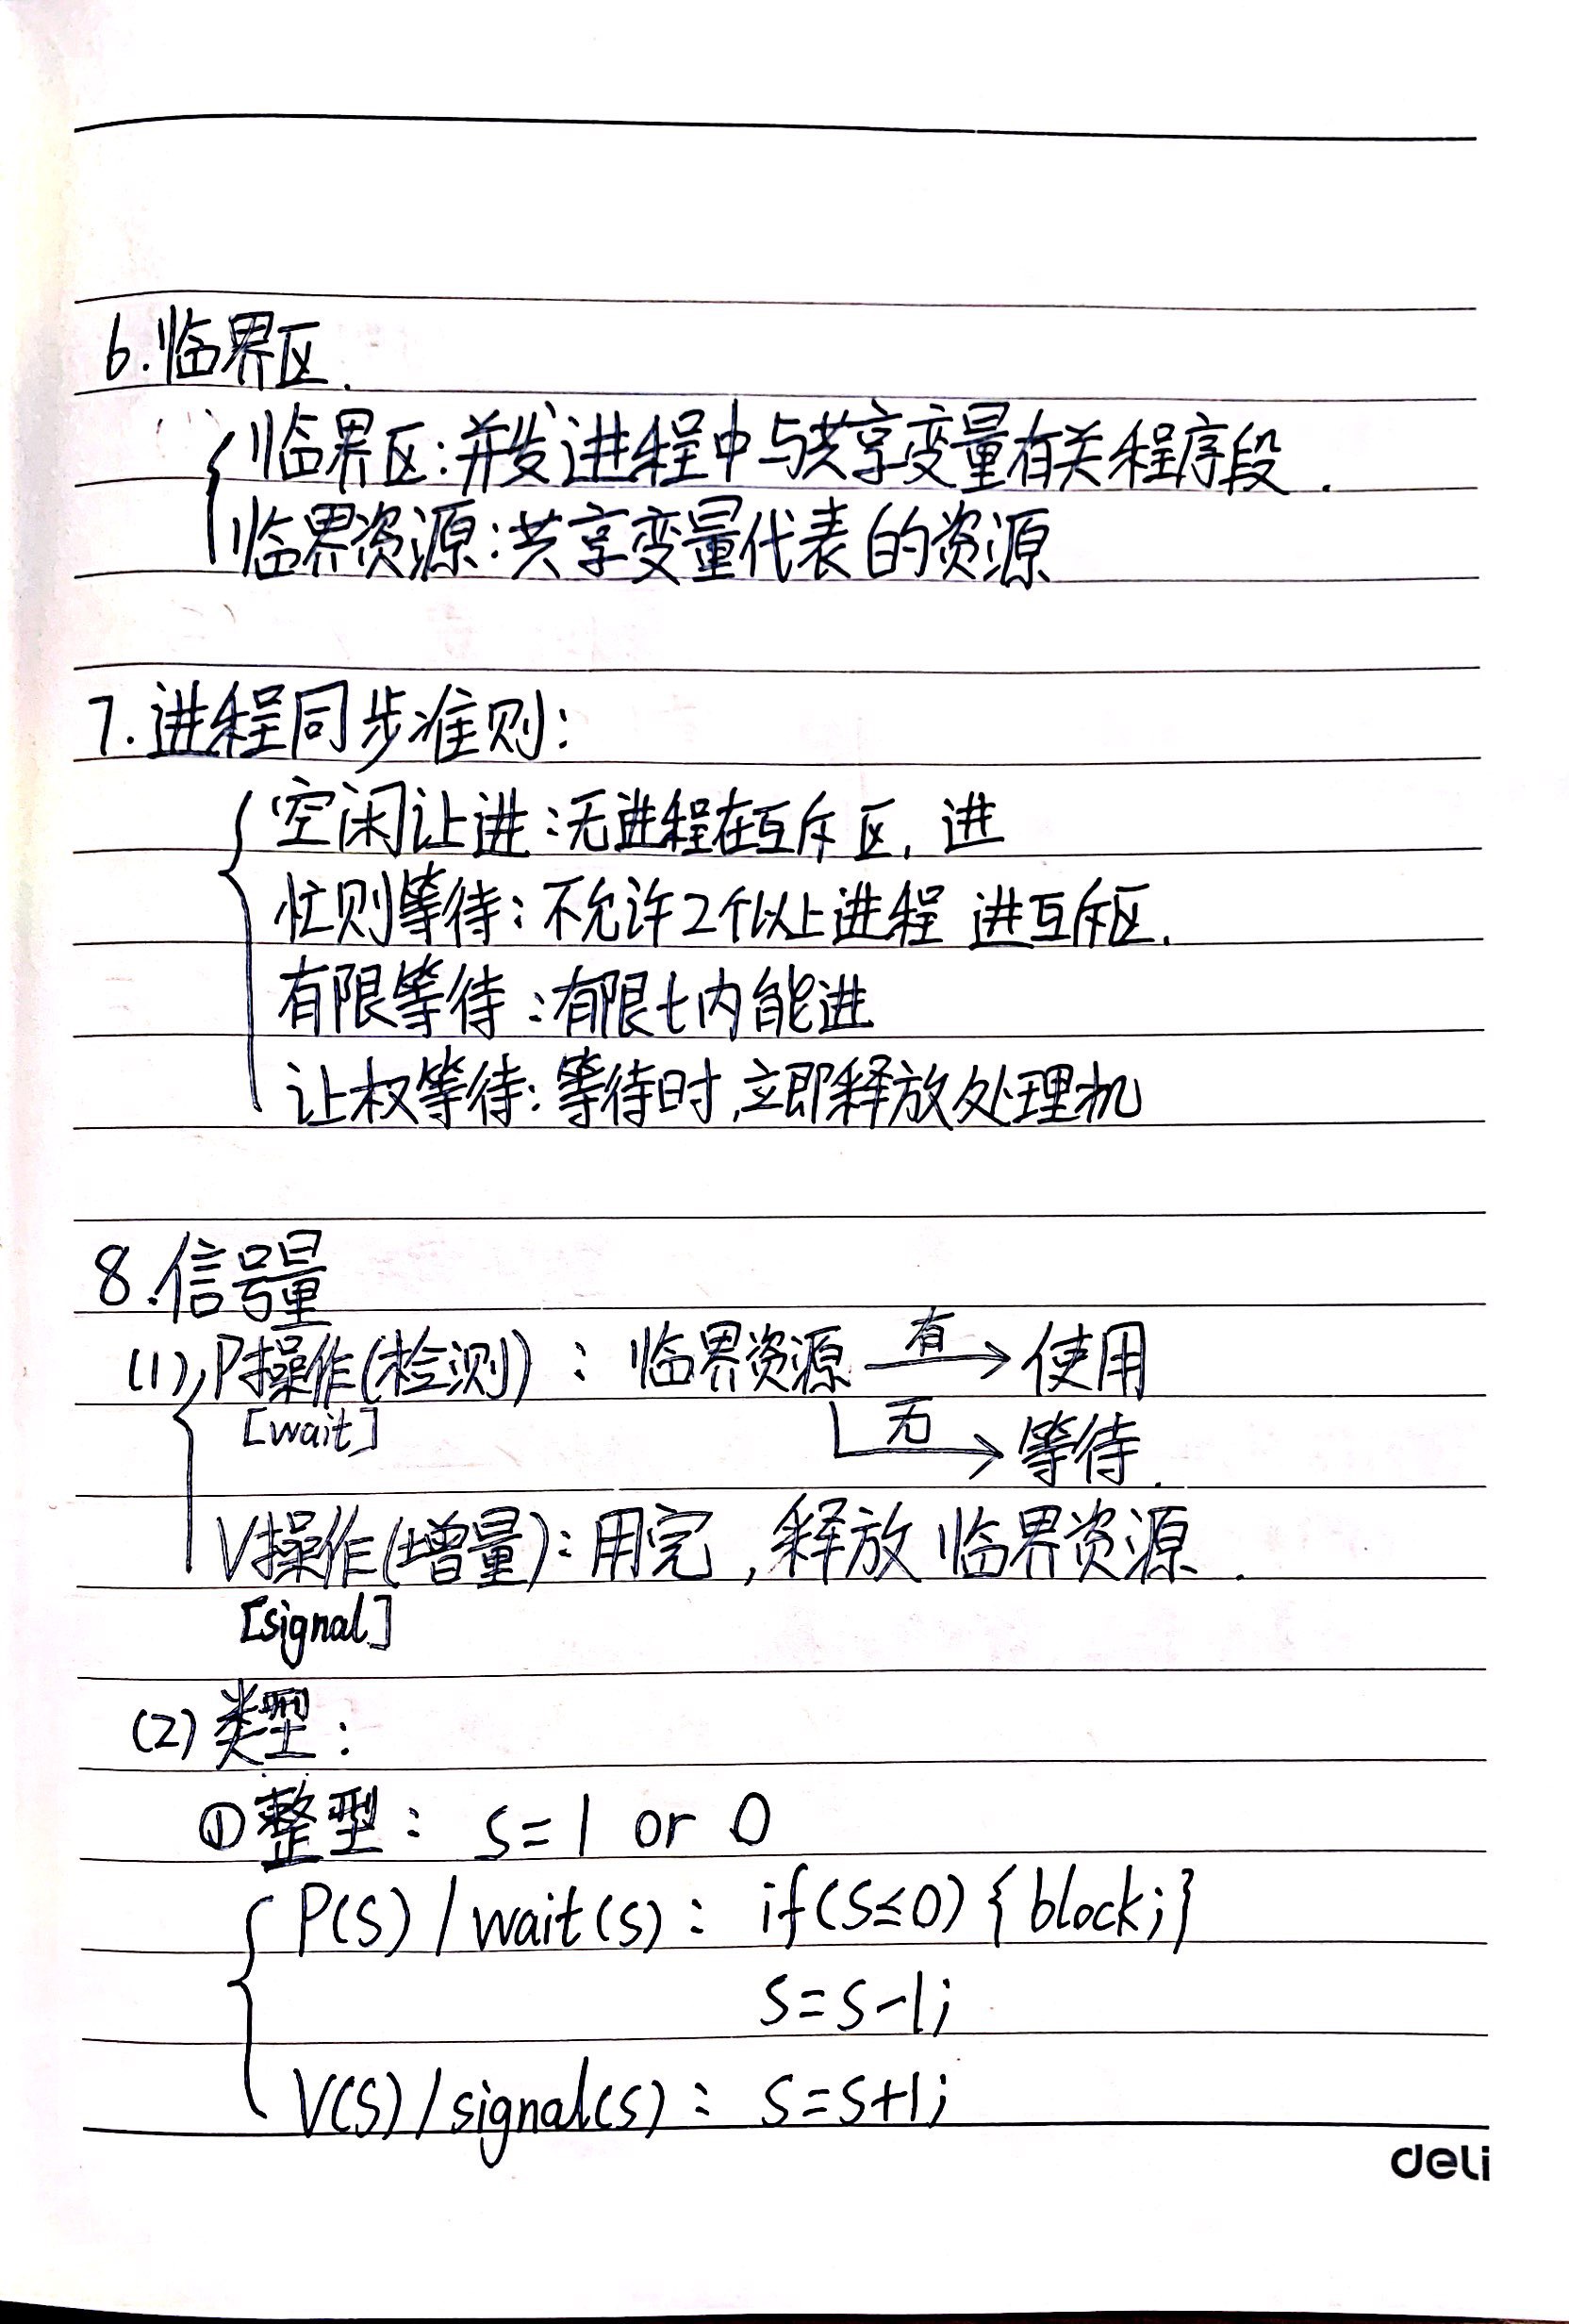 6.临界区.
临界区:并发进程中与共享变量有关程序段.
临界资源:共享变量代表的资源
7.进程同步准则:
空闲让进:无进程在互斥区,进
忙则等待:不允许2个以上进程 进互斥区.
有限等待:有限t内能进
让权等待:等待时,立即释放处理机
8.信号量
(1) P操作(检测): 临界资源 有→ 使用
[wait] 无→ 等待.
V操作(增量):用完,释放 临界资源.
[signal]
(2) 类型:
①整型: S=1 or 0
P(S)/wait(S): if(S≤0){block;}
S=S-1;
V(S)/signal(S): S=S+1;
deli